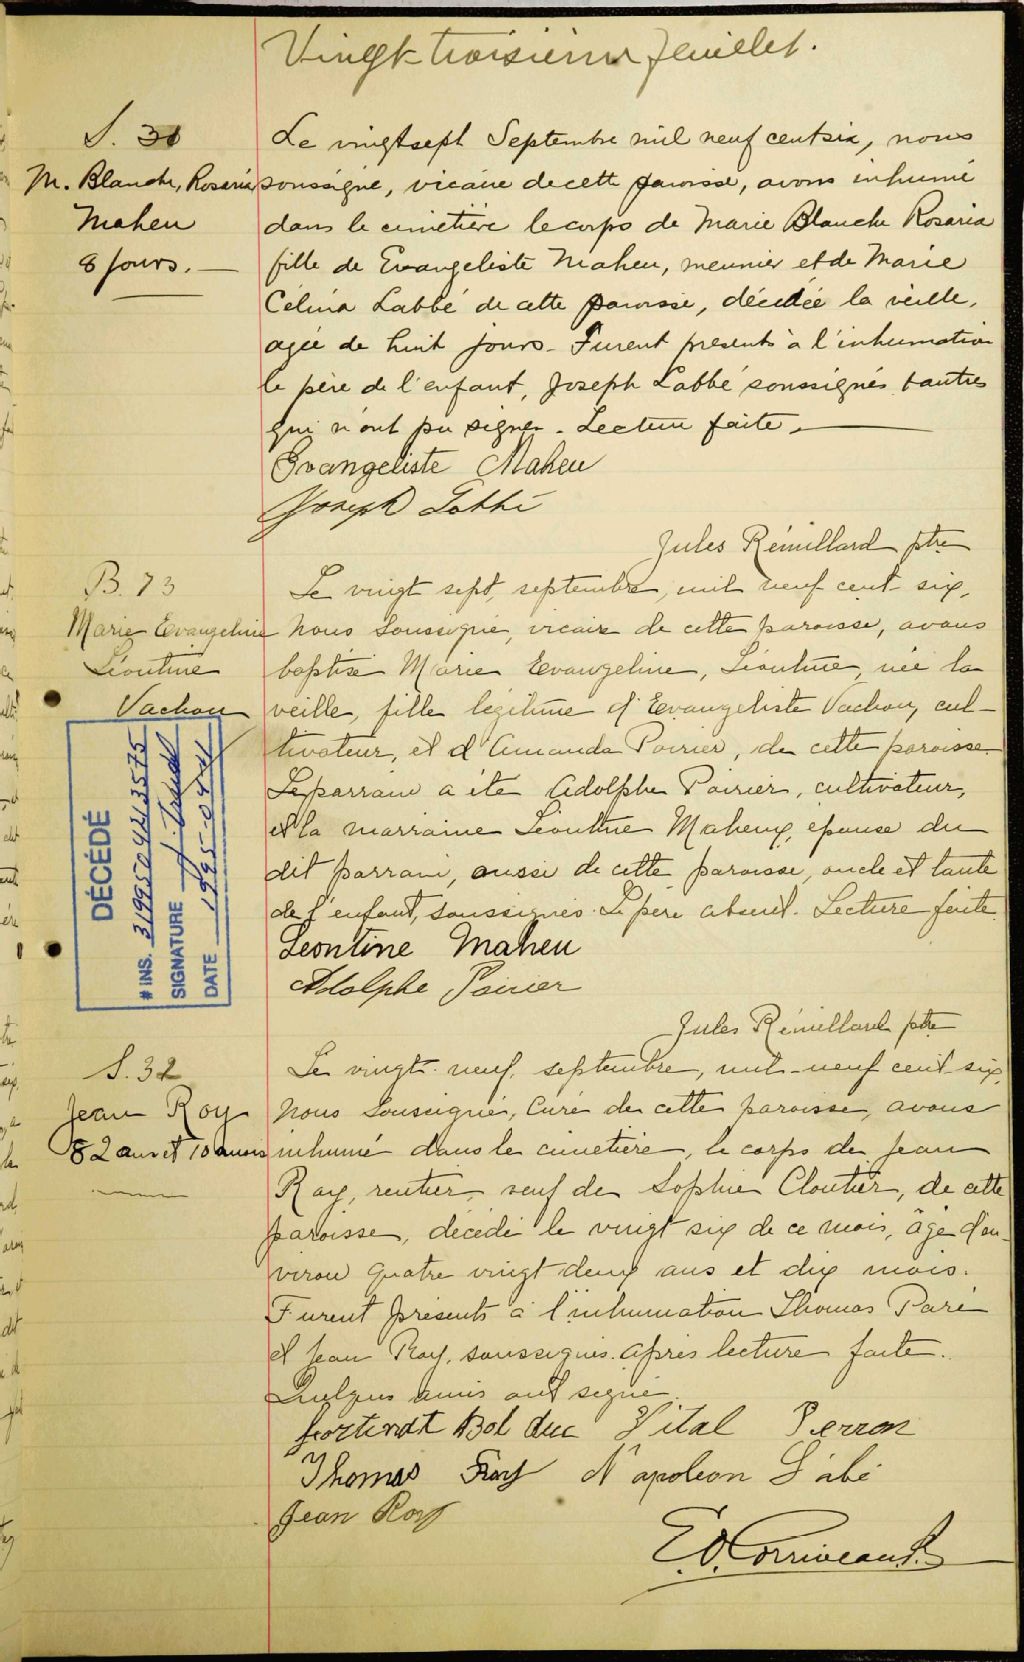 Vingt troisième feuillet.
S. 31
M. Blanche, Rosaria
Maheu
8 jours.
Le vingtsept Septembre mil neuf centsix, nous
soussigné, vicaire de cette paroisse, avons inhumé
dans le cimetière le corps de Marie Blanche Rosaria
fille de Evangeliste Maheu, meunier et de Marie
Célina Labbé de cette paroisse, décédée la veille,
agée de huit jours. Furent présents à l'inhumation
le père de l'enfant, Joseph Labbé soussignés & autres
qui n'ont pu signer. Lecture faite.
Evangeliste Maheu
Joseph Labbé
Jules Rémillard ptre
B. 73
Marie Evangeline
Léontine
Vachon
Le vingt sept, septembre, mil neuf cent six,
Nous soussigné, vicaire de cette paroisse, avons
baptisé Marie Evangeline, Léontine, née la
veille, fille légitime d'Evangeliste Vachon, cul-
tivateur, et d'Amanda Poirier, de cette paroisse.
Le parrain a été Adolphe Poirier, cultivateur,
et la marraine Léontine Maheux, épouse du
dit parrain, aussi de cette paroisse, oncle et tante
de l'enfant, soussignés. Le père absent. Lecture faite.
Leontine Maheu
Adolphe Poirier
Jules Rémillard ptre
DÉCÉDÉ
# INS. 3199504213575
SIGNATURE
DATE 1995-04-21
S. 32
Jean Roy
82 ans et 10 mois
Le vingt-neuf, septembre, mil-neuf cent-six,
Nous Soussigné, Curé de cette paroisse, avons
inhumé dans le cimetière, le corps de Jean
Roy, rentier, veuf de Sophie Cloutier, de cette
paroisse, décédé le vingt six de ce mois, âgé d'en-
viron quatre vingt deux ans et dix mois.
Furent présents à l'inhumation Thomas Paré
et Jean Roy, soussignés. après lecture faite.
Quelques amis ont signé.
fortunat Bolduc Vital Perron
Thomas Roy Napoleon Labé
Jean Roy
E. O. Corriveau